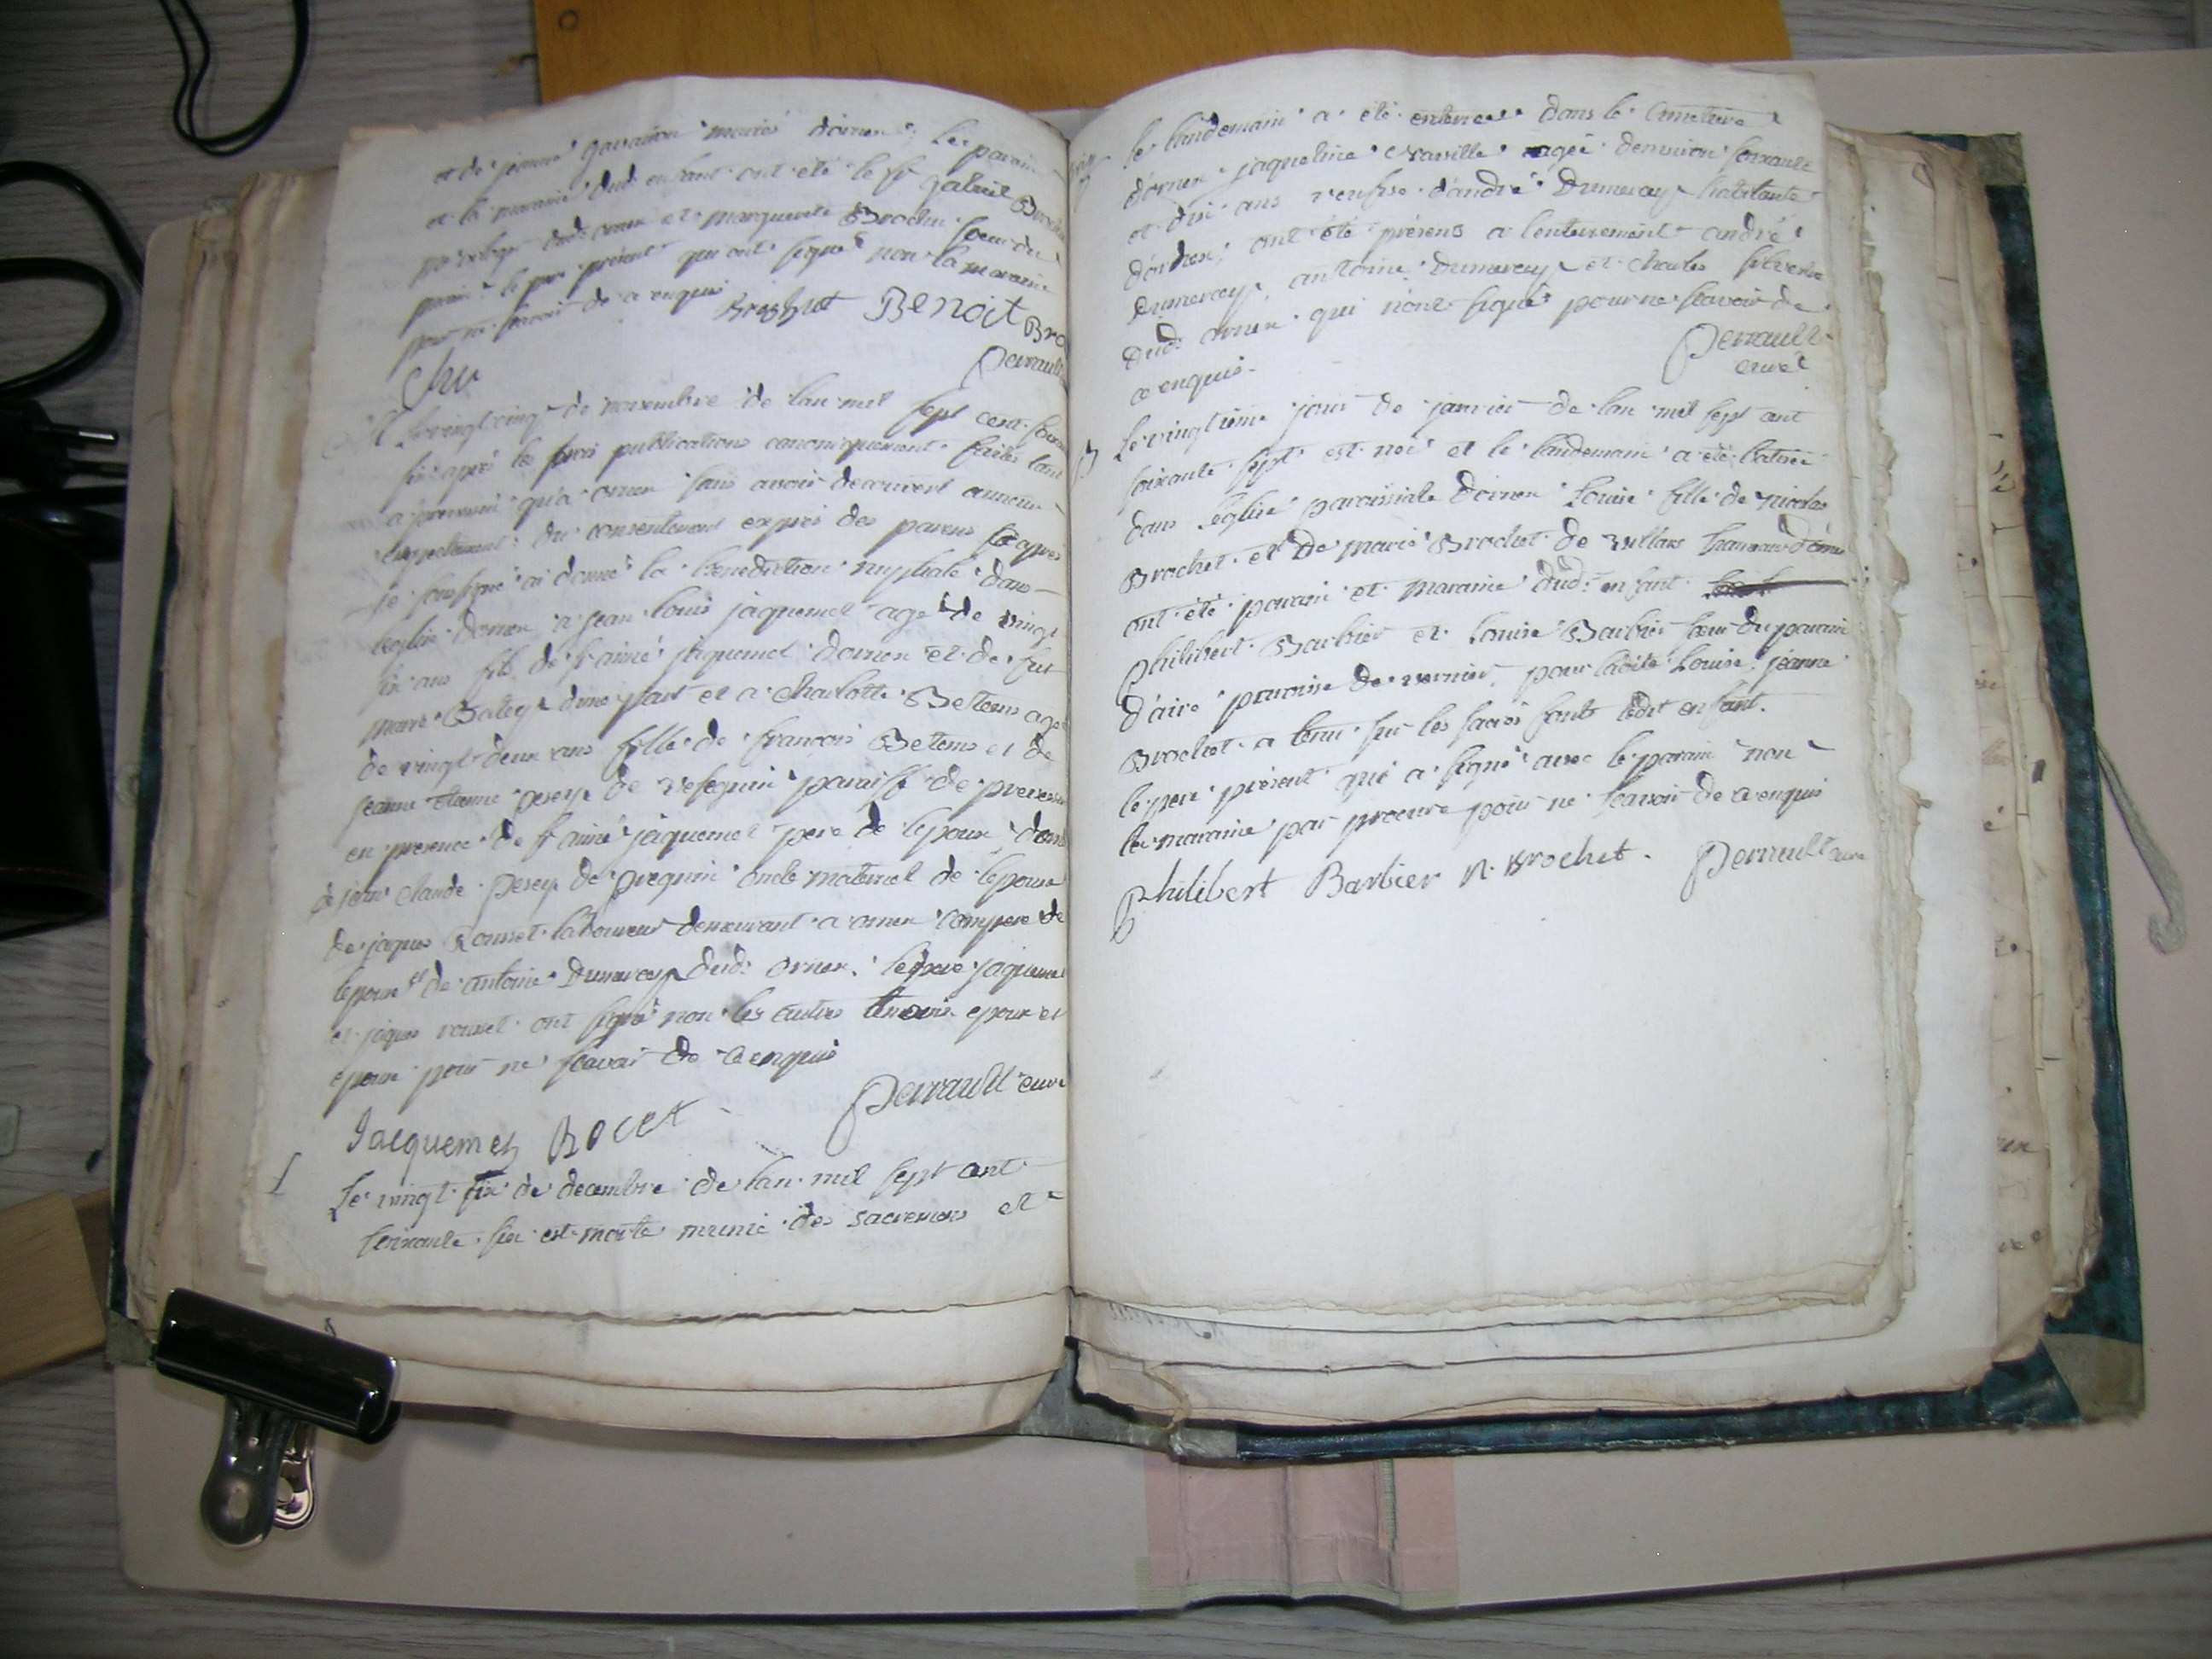 et de jeanne gavairon mariés dornex: Le parain
et la maraine dud: enfant ont été le Sr gabriel Brochu
dud: ornex et marguerite Brochu soeur du
parain le pere présent qui ont signé non la maraine
pour ne scavoir de ce enquis Brochut Benoit Bro
chu Perrault
M Le vingt cinq de novembre de lan mil sept cent soixante
six après les trois publications canoniquement faites tant
a qu'a ornex sans avoir decouvert aucun
empechement du consentement exprès des parens
je soussigné ai donné la benediction nuptiale dans
leglise dornex a jean louis jaquemet agé de vingt
six ans fils de jaquemet dornex et de fut
marie d'une part et a charlotte Betems agée
de vingt deux ans fille de françois Betems et de
jeanne etienne perey de vesegnin paroisse de prevessin
en presence de jaquemet pere de lepoux,
de jean claude perey de pregnin oncle maternel de lepouse
de jaques Rousset laboureur demeurant a ornex compere de
lepoux et de antoine Dumarcey dud: ornex. le pere jaquemet
et jaques rousset ont signé non les autres temoins epoux et
epouse pour ne scavoir de ce enquis
Perrault curé
Jacquemet ROCET
Le vingt six de decembre de lan mil sept cent
soixante six est morte munie des sacremens et
le landemain a été enterrée dans le cimetiere
dornex jaqueline agée denviron soixante
et dix ans veufve d'andré Dumarcey habitante
dornex, ont été présens a lenterrement andré
Dumarcey, antoine Dumarcey et charles silvestre
dud: ornex qui n'ont signé pour ne scavoir de
ce enquis.
Perrault
curé
B Le vingtième jour de janvier de lan mil sept cent
soixante sept est née et le landemain a été batisée
dans leglise paroissiale dornex Louise fille de nicolas
Brochet et de marie Brochet de villars hameau d'ornex
ont été parain et maraine dud: enfant
philibert Barbier et Louise Barbier soeur du parain
d'aire paroisse de vernier, pour ladite Louise, jeanne
Brochet a tenu sur les sacrés fonts ledit enfant.
le pere présent qui a signé avec le parain non
la maraine par procure pour ne scavoir de ce enquis
Philibert Barbier N. Brochet. Perrault curé